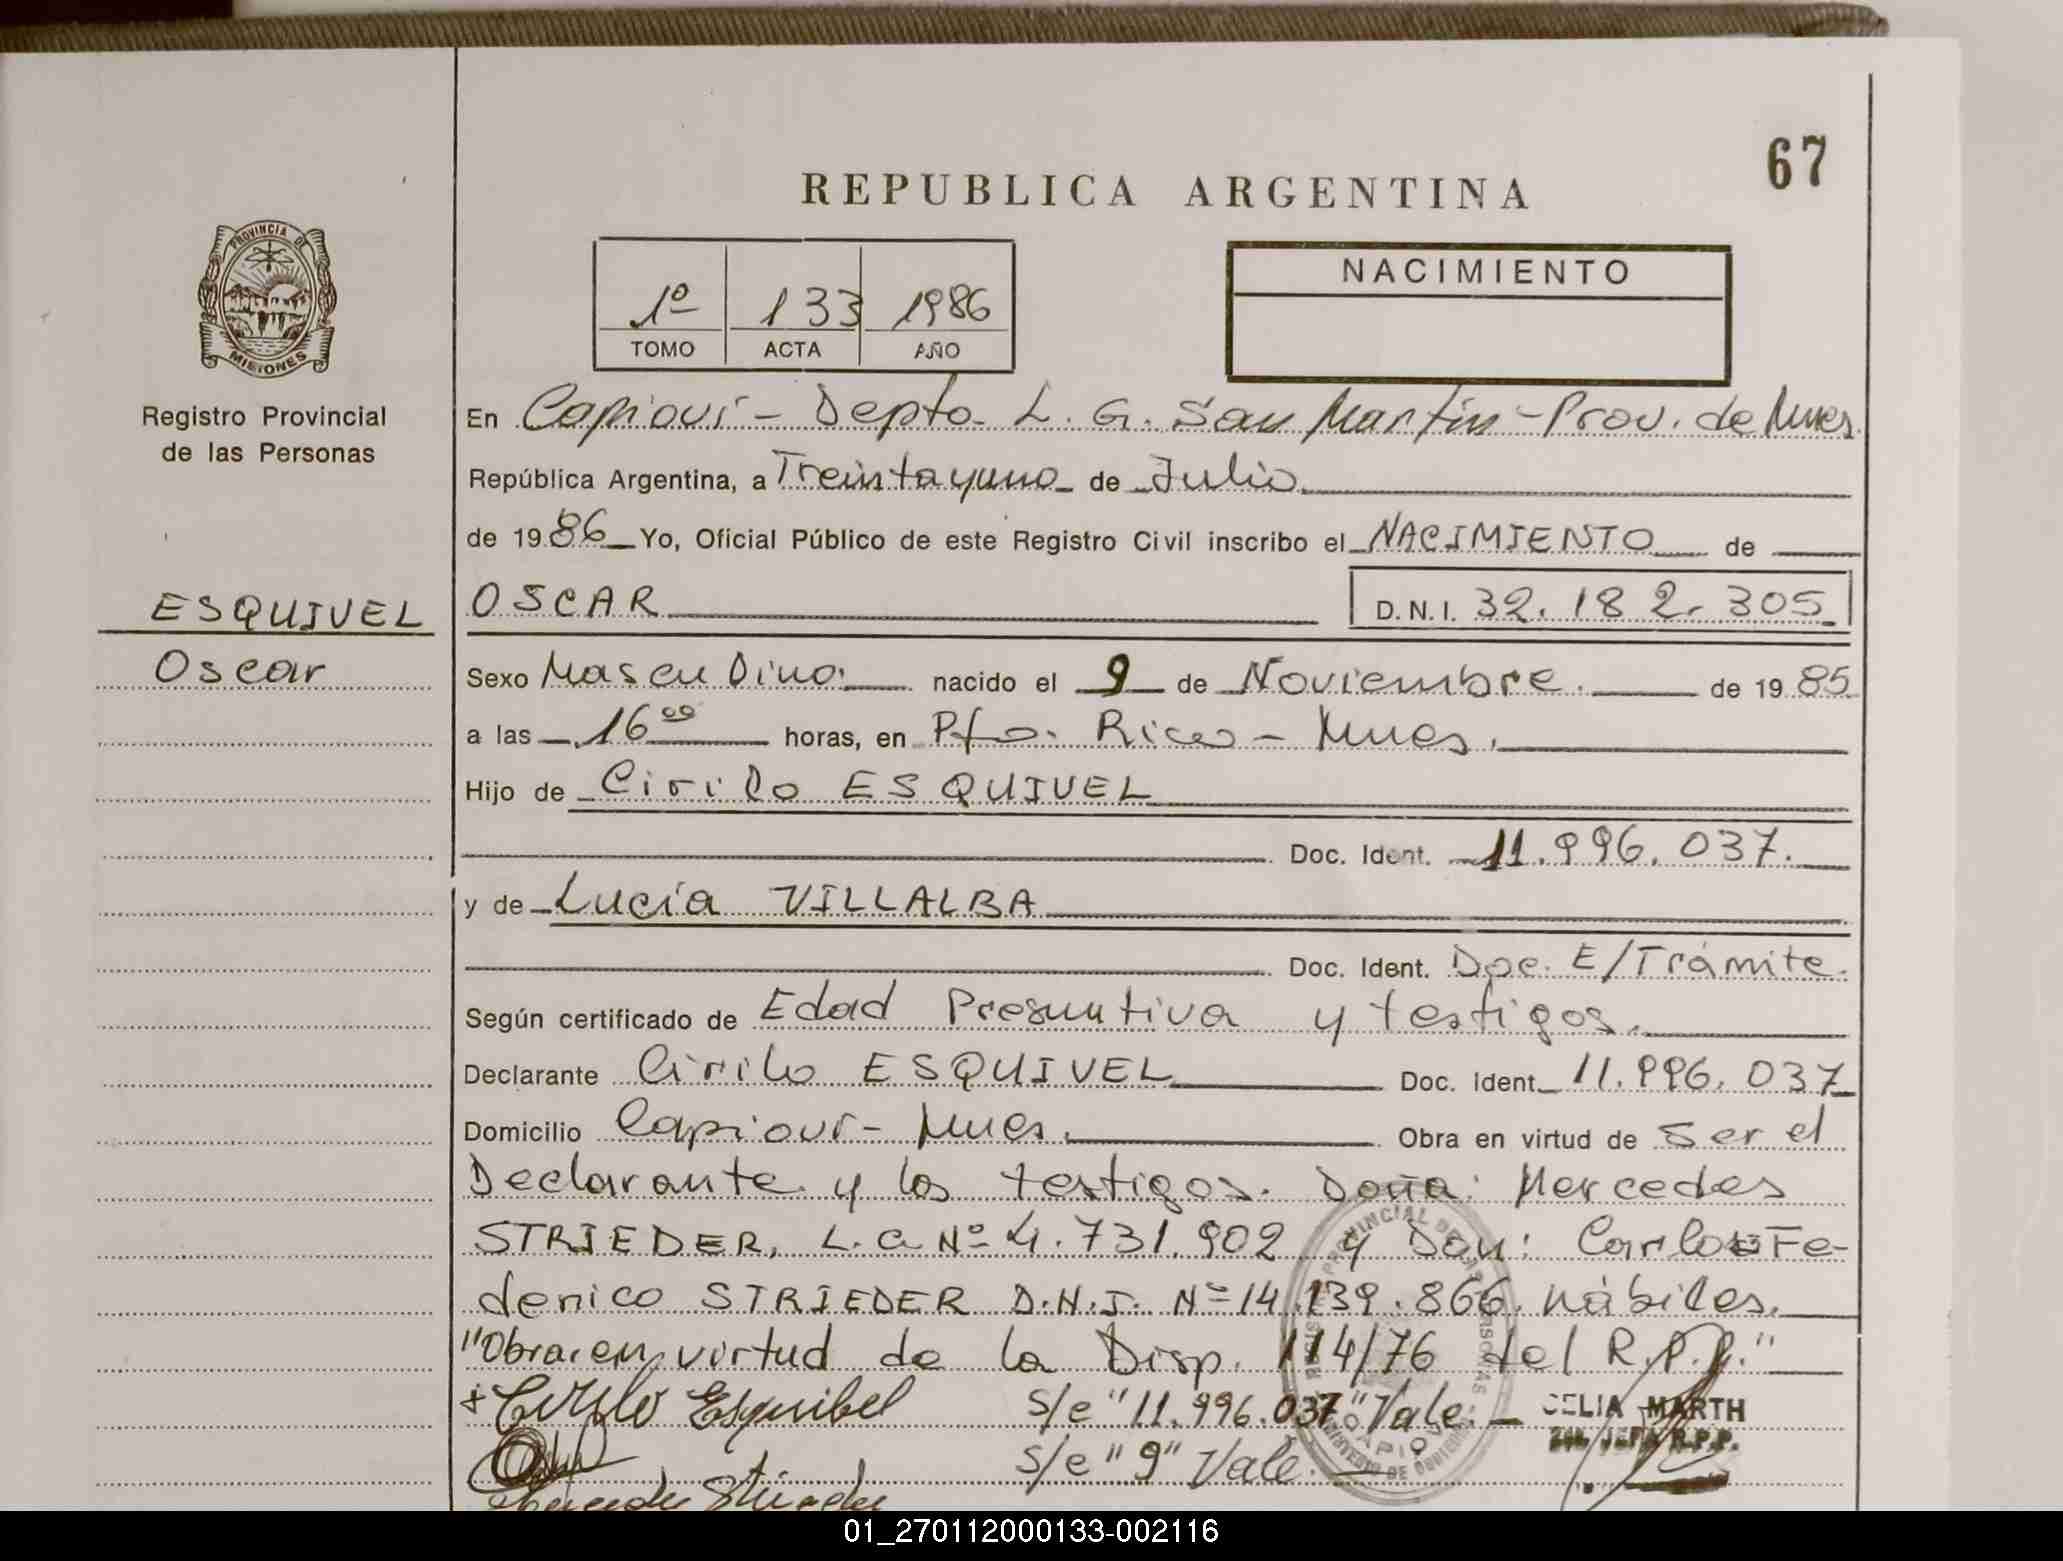 67
REPUBLICA ARGENTINA
PROVINCIA DE
MISIONES
Registro Provincial
de las Personas
1º 133 1986
TOMO ACTA AÑO
NACIMIENTO
En Capioví - Depto. L. G. San Martín - Prov. de Mnes.
República Argentina, a Treinta y uno de Julio
de 1986 Yo, Oficial Público de este Registro Civil inscribo el NACIMIENTO de
ESQUIVEL
OSCAR D.N.I. 32.182.305
Oscar
Sexo Masculino. nacido el 9 de Noviembre. de 1985
a las 16 00 horas, en Pto. Rico - Mnes.
Hijo de Cirilo ESQUIVEL
Doc. Ident. 11.996.037.
y de Lucía VILLALBA
Doc. Ident. Doc. E/Trámite.
Según certificado de Edad Presuntiva y testigos.
Declarante Cirilo ESQUIVEL Doc. Ident 11.996.037
Domicilio Capioví - Mnes. Obra en virtud de ser el
Declarante y los testigos. Doña: Mercedes
STRIEDER, L.C Nº 4.731.902 y Don: Carlos Fe-
derico STRIEDER D.N.I. Nº 14.139.866. hábiles.
"Obra en virtud de la Disp. 114/76 del R.P.P."
+ Cirilo Esquibel s/e "11.996.037" Vale. - CELIA MARTH
s/e "9" Vale. - JEFA R.P.P.
01_270112000133-002116